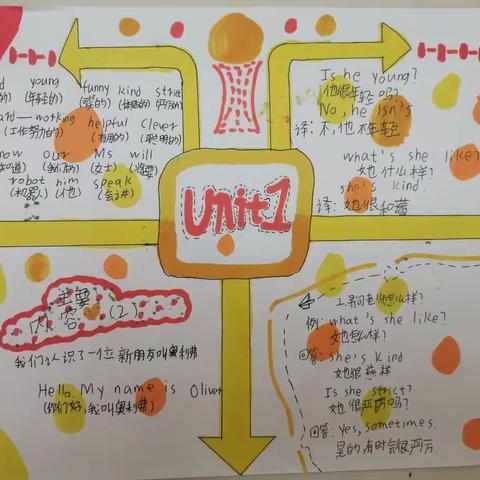 young funny kind strict
(年轻的)
working helpful clever
(工作努力的) (有用的) (聪明的)
know our Ms will
(我们的) (女士) (将要)
robot him speak
(机器人) (他)
Is he young?
他很年轻吗?
No, he isn's
译:不,他不年轻
what's she like?
她什么样?
she's kind.
译:她很和蔼
Unit1
主要
内容(2)
我们认识了一位新朋友叫奥利弗
Hello. My name is Oliver
(你们好,我叫奥利弗)
例:what's she like?
她怎么样?
回答:she's kind
她很慈祥
Is she strict?
她很严厉吗?
回答:yes, sometimes.
是的有时会很严厉